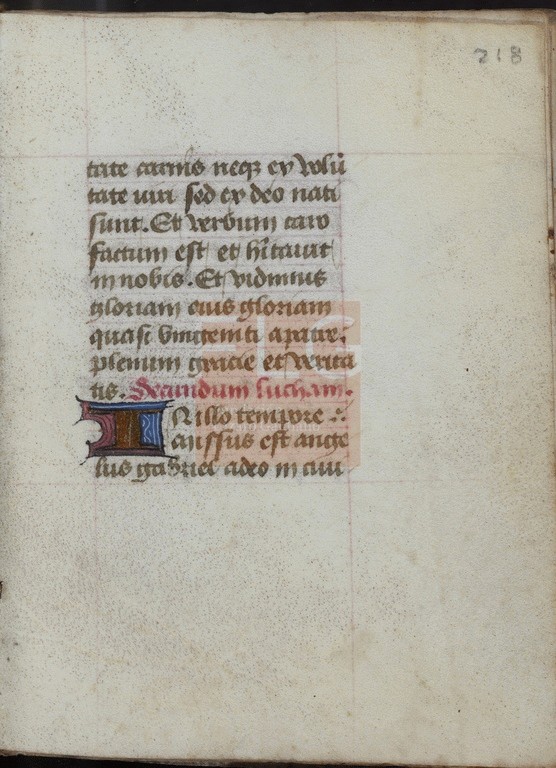 218
tate carnis neqꝫ ex volū
tate viri sed ex deo nati
sunt. Et verbum caro
factum est et hītauit
in nobis. Et vidimus
gloriam eius gloriam
quasi vnigeniti a patre:
plenum gracie et verita
tis. Secundum lucham.
IN illo tempore :
missus est ange
lus gabriel adeo in ciui